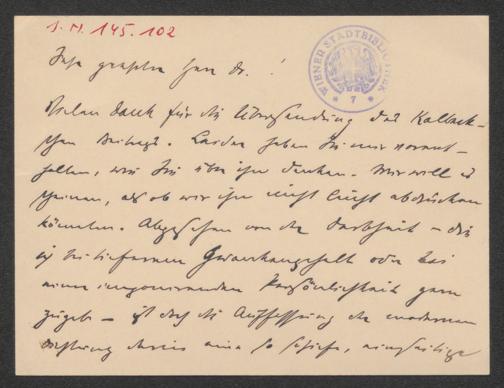 I.N. 145.102
WIENER STADTBIBLIOTHEK
7
Sehr geehrter Herr Dr.!
Vielen Dank für die Übersendung des Kalbeck-
schen Beitrags. Leider haben Sie mir vorent-
halten, wie Sie über ihn denken. Mir will es
scheinen, als ob wir ihn nicht leicht abdrucken
könnten. Abgesehen von der Derbheit – die
ich bei tieferem Gedankengehalt oder bei
einer imponierenden Persönlichkeit gern
zugebe – ist doch die Auffassung der modernen
Dichtung darin eine so schiefe, einseitige